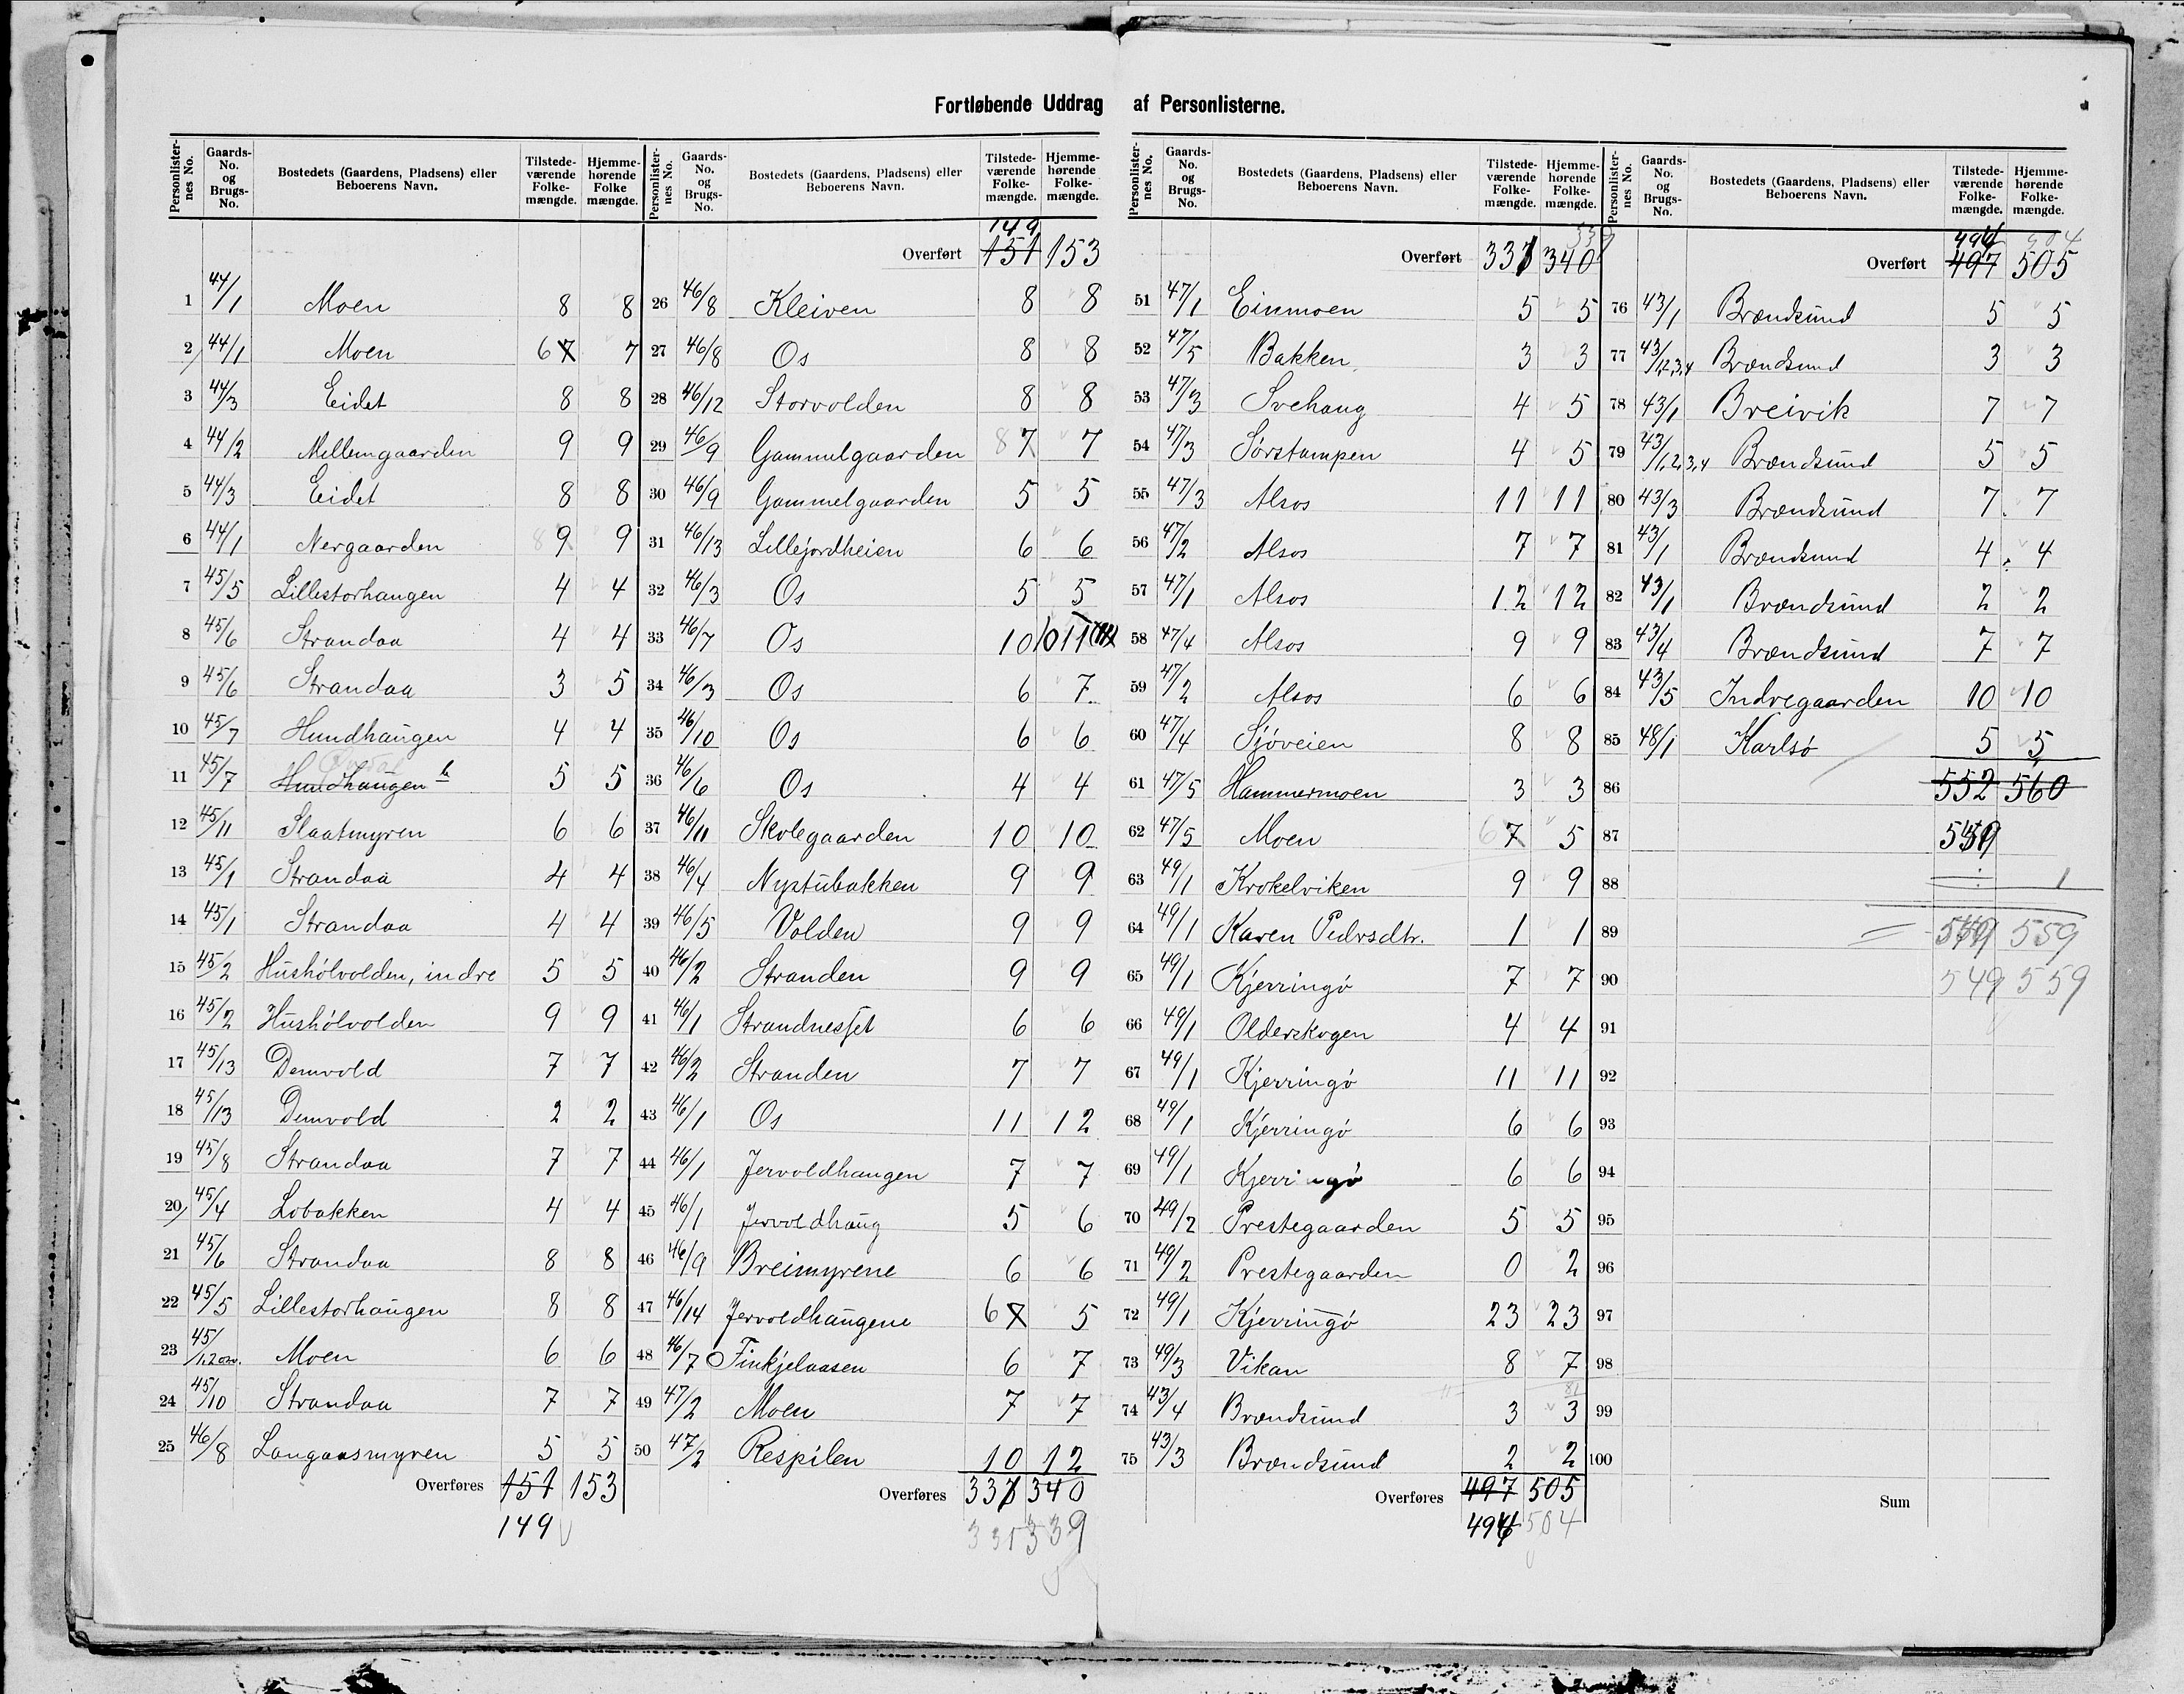 Fortløbende Uddrag af Personlisterne.
Personlister-nes No. Gaards-No. og Brugs-No. Bostedets (Gaardens, Pladsens) eller Beboerens Navn. Tilstede-værende Folke-mængde. Hjemme-hørende Folke mængde.
1 44/1 Moen 8 8
2 44/1 Moen 6 7 7
3 44/3 Eidet 8 8
4 44/2 Mellemgaarden 9 9
5 44/3 Eidet 8 8
6 44/1 Nergaarden 8 9 9
7 45/5 Lillestorhaugen 4 4
8 45/6 Strandaa 4 4
9 45/6 Strandaa 3 5
10 45/7 Hundhaugen 4 4
11 45/7 Hundhaugen 5 5
12 45/11 Slaatmyren 6 6
13 45/1 Strandaa 4 4
14 45/1 Strandaa 4 4
15 45/2 Hushólvolden, indre 5 5
16 45/2 Hushólvolden 9 9
17 45/13 Demvold 7 7
18 45/13 Demvold 2 2
19 45/8 Strandaa 7 7
20 45/4 Lobakken 4 4
21 45/6 Strandaa 8 8
22 45/5 Lillestorhaugen 8 8
23 45/1.2 osv. Moen 6 6
24 45/10 Strandaa 7 7
25 46/8 Langaasmyren 5 5
Overføres 151 153
149
Personlister-nes No. Gaards-No. og Brugs-No. Bostedets (Gaardens, Pladsens) eller Beboerens Navn. Tilstede-værende Folke-mængde. Hjemme-hørende Folke-mængde.
149
Overført 151 153
26 46/8 Kleiven 8 8
27 46/8 Os 8 8
28 46/12 Storvolden 8 8
29 46/9 Gammelgaarden 8 7 7
30 46/9 Gammelgaarden 5 5
31 46/13 Lillejordheien 6 6
32 46/3 Os 5 5
33 46/7 Os 10 10 11
34 46/3 Os 6 7
35 46/10 Os 6 6
36 46/6 Os 4 4
37 46/11 Skolegaarden 10 10
38 46/4 Nystubakken 9 9
39 46/5 Volden 9 9
40 46/2 Stranden 9 9
41 46/1 Strandnesset 6 6
42 46/2 Stranden 7 7
43 46/1 Os 11 12
44 46/1 Jervoldhaugen 7 7
45 46/1 Jervoldhaug 5 6
46 46/9 Breimyrene 6 6
47 46/14 Jervoldhaugene 6 7 5
48 46/7 Finkjelaasen 6 7
49 47/2 Moen 7 7
50 47/2 Respilen 10 12
Overføres 337 340
331 339
Personlister-nes No. Gaards-No. og Brugs-No. Bostedets (Gaardens, Pladsens) eller Beboerens Navn. Tilstede-værende Folke-mængde. Hjemme-hørende Folke-mængde.
339
Overført 337 340
51 47/1 Einmoen 5 5
52 47/5 Bakken 3 3
53 47/3 Svehaug 4 5
54 47/3 Sørstampen 4 5
55 47/3 Alsos 11 11
56 47/2 Alsos 7 7
57 47/1 Alsos 12 12
58 47/4 Alsos 9 9
59 47/2 Alsos 6 6
60 47/4 Sjóveien 8 8
61 47/5 Hammermoen 3 3
62 47/5 Moen 6 7 5
63 49/1 Krokelviken 9 9
64 49/1 Karen Pedrsdtr. 1 1
65 49/1 Kjerringó 7 7
66 49/1 Olderskogen 4 4
67 49/1 Kjerringó 11 11
68 49/1 Kjerringó 6 6
69 49/1 Kjerringó 6 6
70 49/2 Prestegaarden 5 5
71 49/2 Prestegaarden 0 2
72 49/1 Kjerringó 23 23
73 49/3 Vikan 8 7
74 43/4 Brændsund 3 3
75 43/3 Brændsund 2 2
Overføres 497 505
494 504
Personlister-nes No. Gaards-No. og Brugs-No. Bostedets (Gaardens, Pladsens) eller Beboerens Navn. Tilstede-værende Folke-mængde. Hjemme-hørende Folke-mængde.
494 504
Overført 497 505
76 43/1 Brændsund 5 5
77 43/1,2,3,4 Brændsund 3 3
78 43/1 Breivik 7 7
79 43/1,2,3,4 Brændsund 5 5
80 43/3 Brændsund 7 7
81 43/1 Brændsund 4 4
82 43/1 Brændsund 2 2
83 43/4 Brændsund 7 7
84 43/5 Indregaarden 10 10
85 48/1 Karlsó 5 5
86 552 560
87
88 1
89 549 559
90 549 559
91
92
93
94
95
96
97
98
99
100
Sum